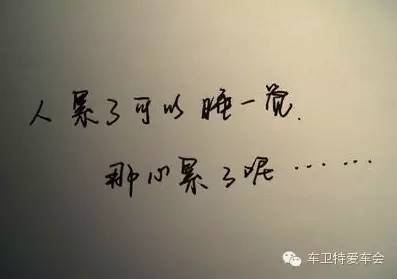 人累了可以睡一觉.
那心累了呢……
车卫特爱车会